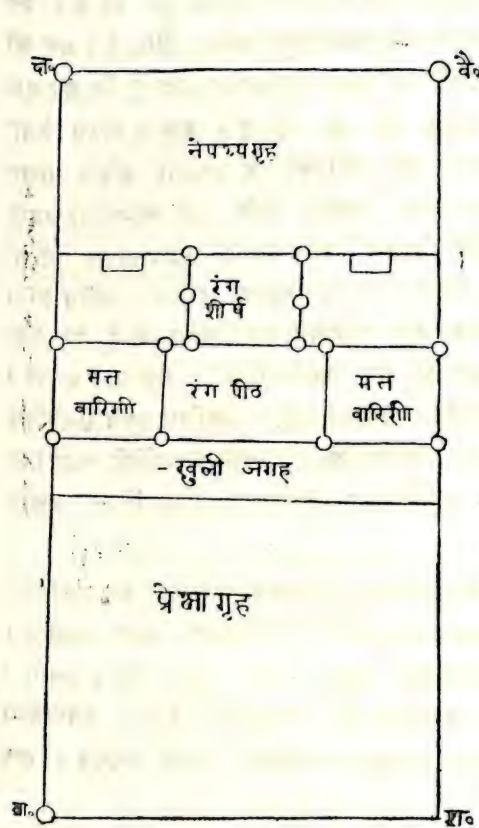 ब्रा॰ वै॰
नेपथ्यगृह
रंग
शीर्ष
मत्त
वारिणी
रंग पीठ
मत्त
वारिणी
- खुली जगह
प्रेक्षागृह
क्ष॰
श॰